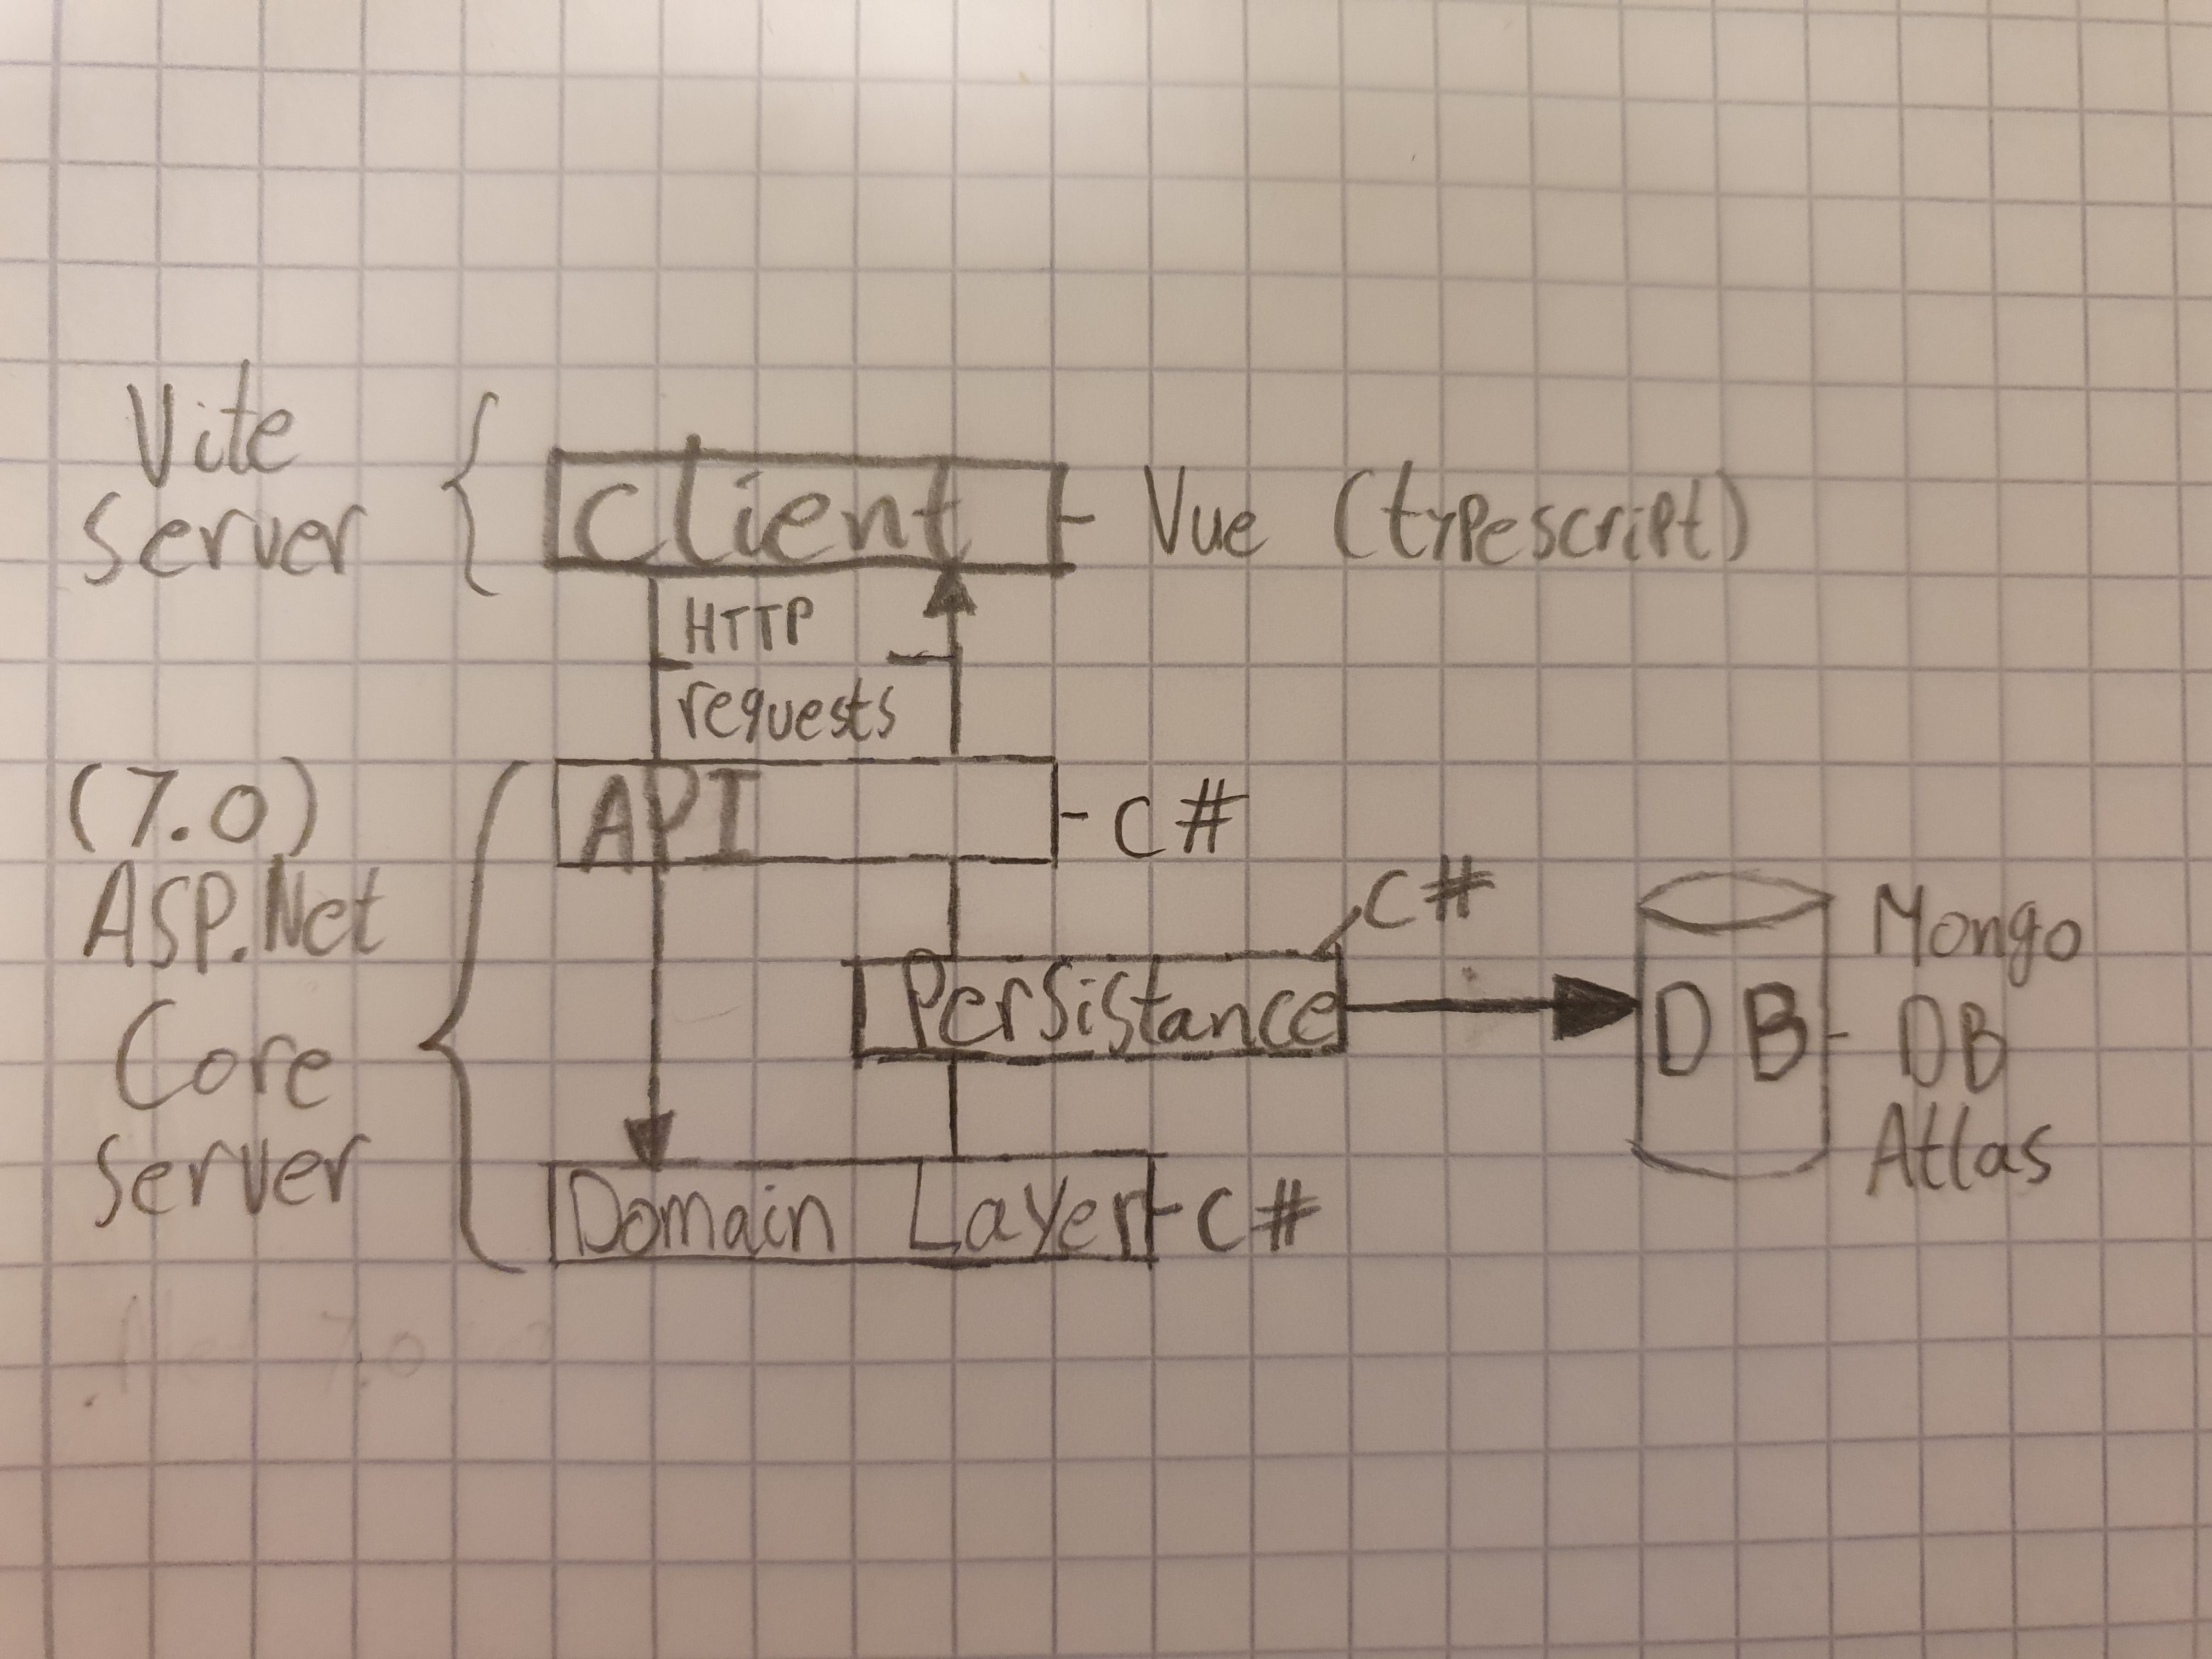 Vite
Server
client
Vue (typescript)
HTTP
requests
(7.0)
ASP.Net
Core
Server
API
C#
Persistance
C#
DB
Mongo
DB
Atlas
Domain Layer
C#
.Net 7.0